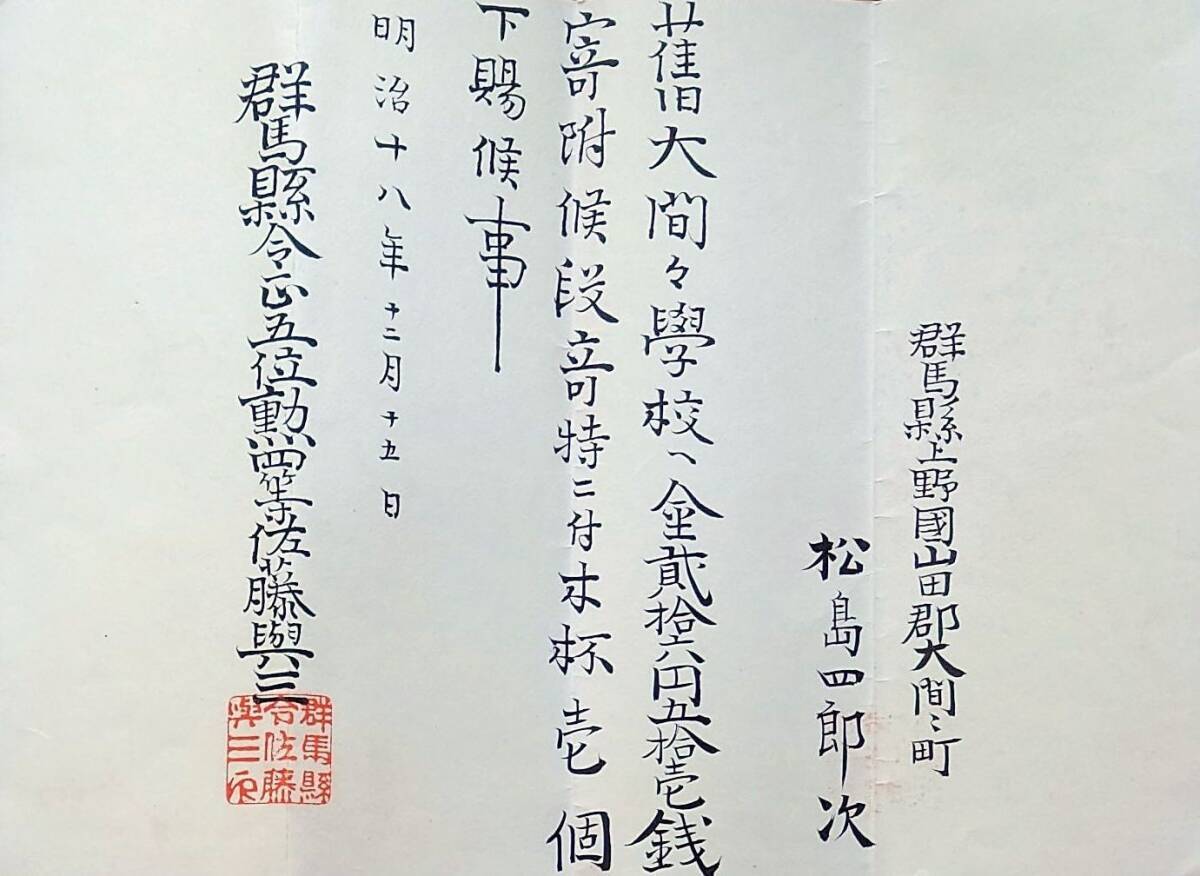 群馬縣上野國山田郡大間〻町
松島四郎次
舊大間々學校ヘ金貳拾六円五拾壱銭
寄附候段奇特ニ付木杯壱個
下賜候事
明治十八年十二月十五日
群馬縣令正五位勲四等佐藤與三
群馬縣
令佐藤
與三印